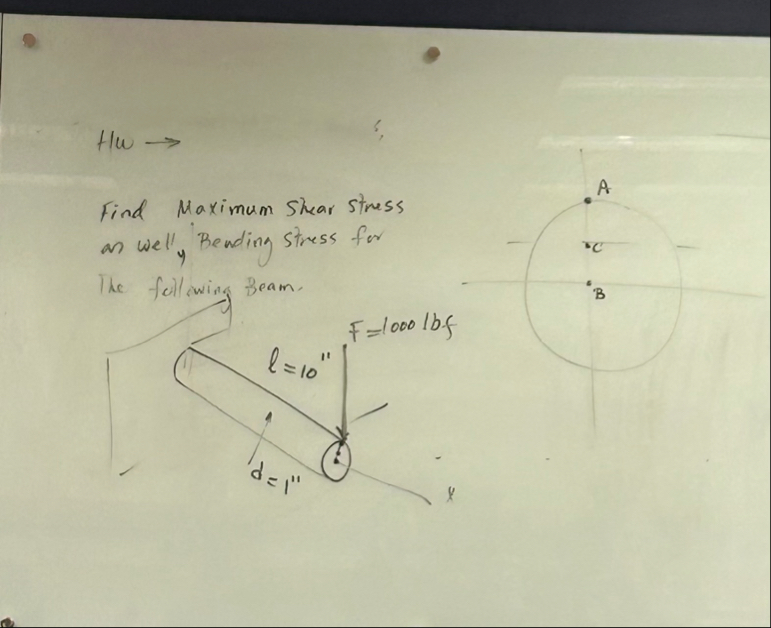 HW →
Find Maximum Shear stress
as well, Bending stress for
The following Beam.
F=1000 lbf
l=10"
d=1"
x
A
C
B